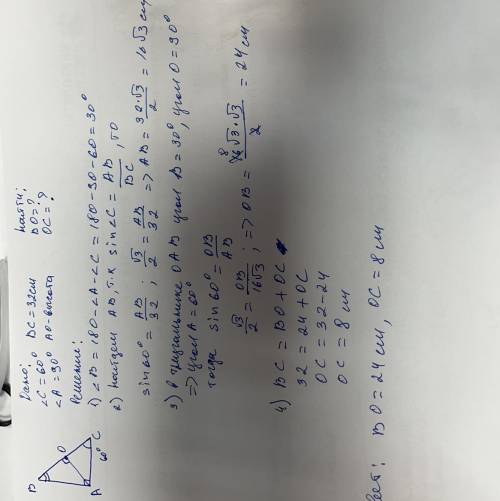 Дано:
∠C = 60° BC = 32 см
∠A = 90° AO - высота
Найти:
BO = ?
OC = ?
B
O
A
60°
C
Решение:
1) ∠B = 180 - ∠A - ∠C = 180 - 90 - 60 = 30°
2) Найдем AB, т.к sin∠C = AB/BC, то
sin60° = AB/32 ; √3/2 = AB/32 => AB = 32·√3/2 = 16√3 см
3) В треугольнике OAB угол B = 30°, угол O = 90°
=> угол A = 60°
тогда sin60° = OB/AB
√3/2 = OB/16√3 ; => OB = 16√3·√3/2 = 24 см
8
4) BC = BO + OC
32 = 24 + OC
OC = 32 - 24
OC = 8 см
вет: BO = 24 см, OC = 8 см